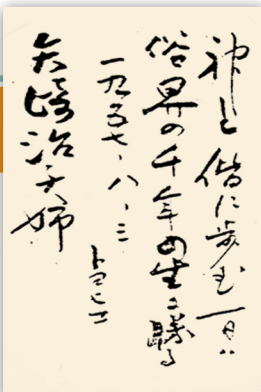 神と偕に歩む一日ハ
俗界の千年の生ニ勝る
一九五七、八、三
トヨヒコ
矢崎治子姉